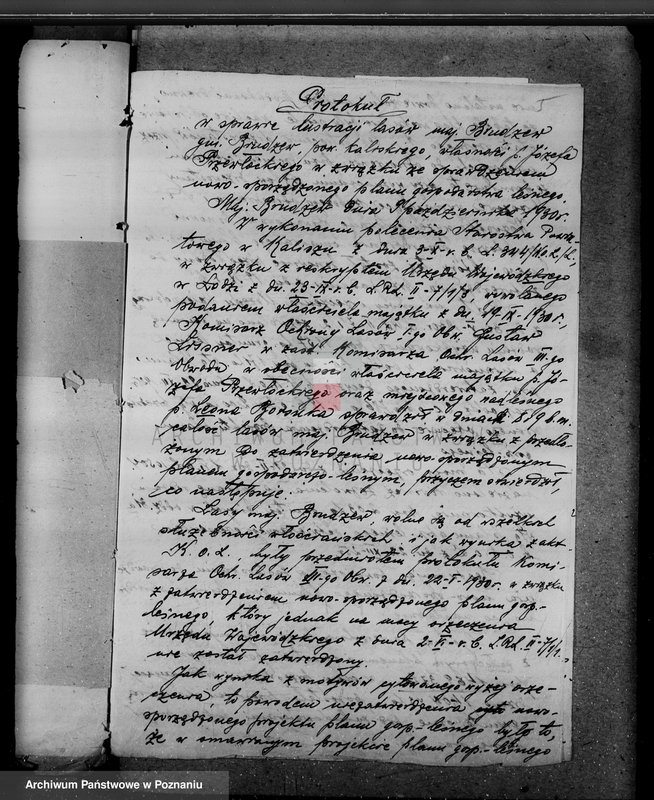 Protokuł
w sprawie lustracji lasów maj. Brudzew
gm. Brudzew, pow. kaliskiego, własności p. Józefa
w związku ze sprawdzeniem
nowo-sporządzonego planu gospodarstwa leśnego.
Maj. Brudzew dnia 9 października 1930 r.
W wykonaniu polecenia Starostwa Powia-
towego w Kaliszu z dnia 3-X-r.b. L.
w związku z reskryptem Urzędu Wojewódzkiego
w Łodzi z dn. 23-IX-r.b. L.RL. II-7/1/8, wywołanego
podaniem właściciela majątku z dn. 19.IX-1930 r.,
Komisarz Ochrony Lasów I-go Obw. Gustaw
w zast. Komisarza Ochr. Lasów III-go
Obwodu w obecności właściciela majątku p. Jó-
zefa oraz miejscowego nadleśnego
p. Leona sprawdził w dniach 8 i 9 b.m.
całość lasów maj. Brudzew w związku z przedło-
żonym do zatwierdzenia nowo-sporządzonym
planem gospodarczo-leśnym, przyczem stwierdził,
co następuje.
Lasy maj. Brudzew, wolne są od wszelkich
służebności włościańskich, i jak wynika z akt-
K.O.L. były przedmiotem protokułu Komi-
sarza Ochr. Lasów III-go Obw. z dn. 22-I-1930 r. w związku
z zatwierdzeniem nowo-sporządzonego planu gosp.-
leśnego, który jednak na mocy orzeczenia
Urzędu Wojewódzkiego z dnia r.b. L.RL. II-7/1/
nie został zatwierdzony.
Jak wynika z motywów cytowanego wyżej orze-
czenia, to powodem niezatwierdzenia nowo-
sporządzonego projektu planu gosp.-leśnego było to,
że w omawianym projekcie planu gosp.-leśnego
Archiwum Państwowe w Poznaniu